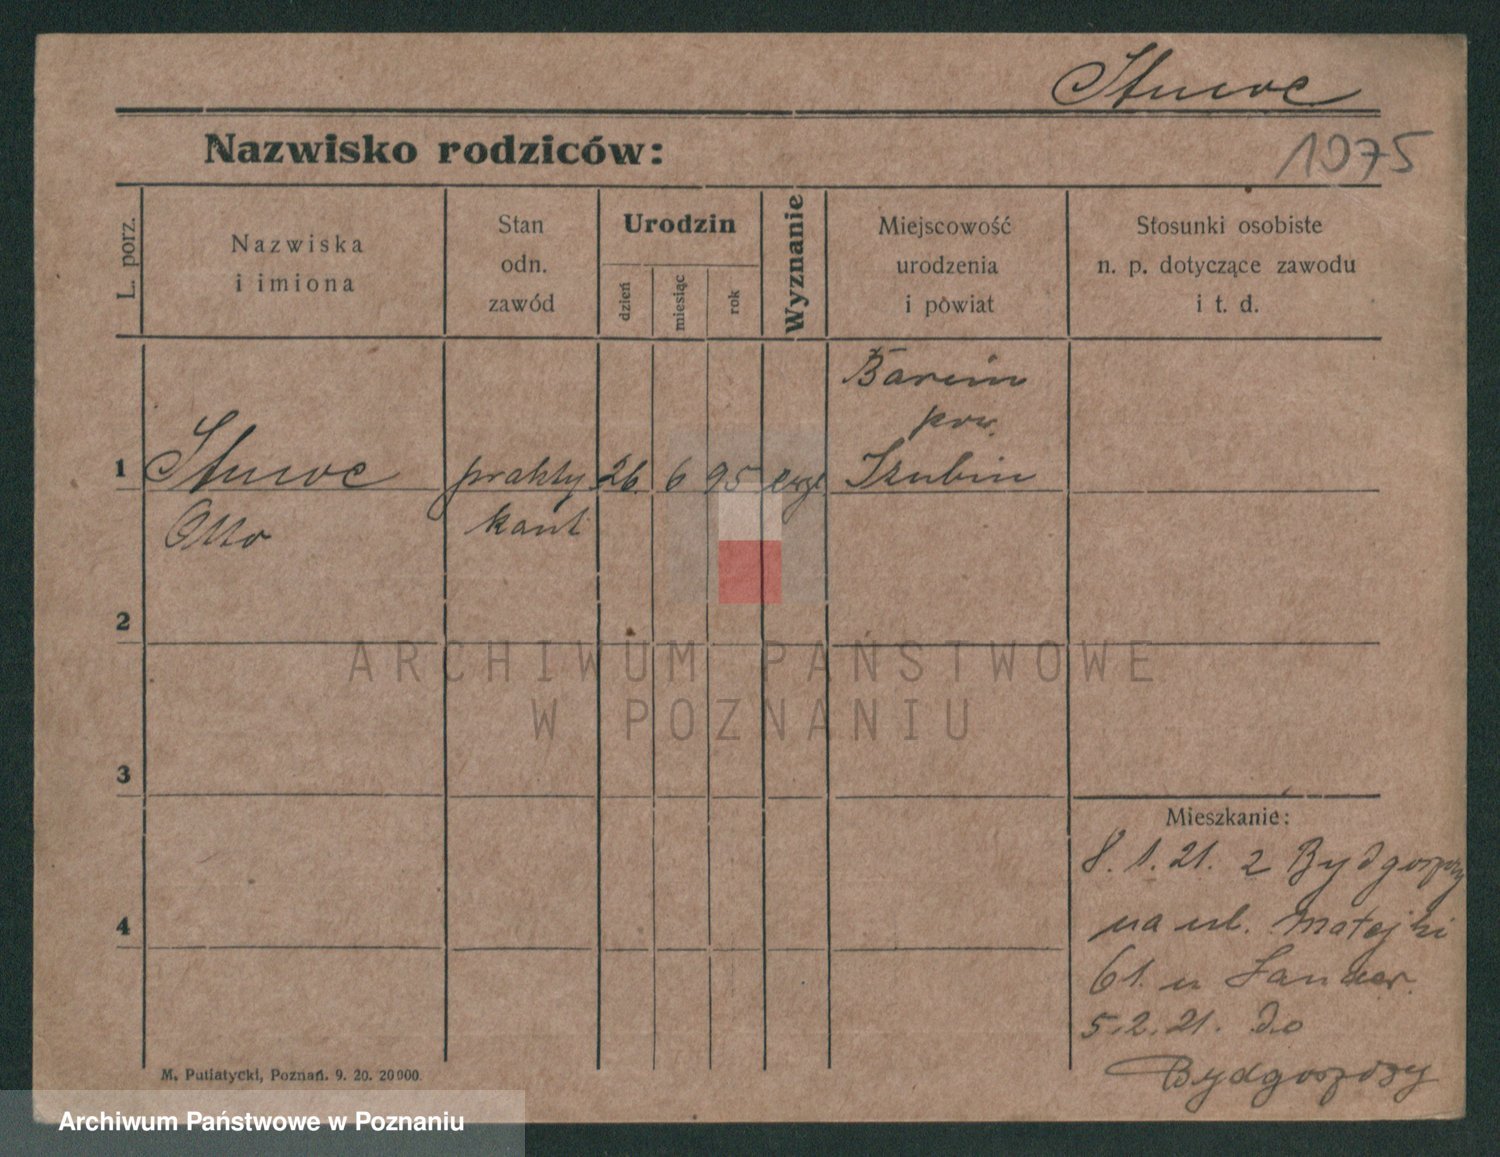 Nazwisko rodziców:
1075
L. porz.
Nazwiska
i imiona
Stan
odn.
zawód
Urodzin
dzień
miesiąc
rok
Wyznanie
Miejscowość
urodzenia
i powiat
Stosunki osobiste
n. p. dotyczące zawodu
i t. d.
Barcin
pow.
1 prakty 26. 6 95 ewgl Szubin
Otto kant
2
3
4
Mieszkanie:
8. 1. 21. z Bydgoszczy
na ul. Matejki
61. u
5.2.21. do
Bydgoszczy
M. Putiatycki, Poznań. 9. 20. 20000.
ARCHIWUM PAŃSTWOWE
W POZNANIU
Archiwum Państwowe w Poznaniu